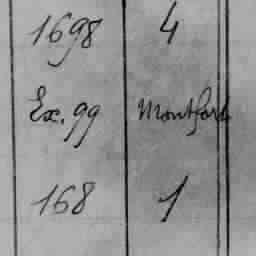 1698 4
Ex. 99 Montfort
168 1